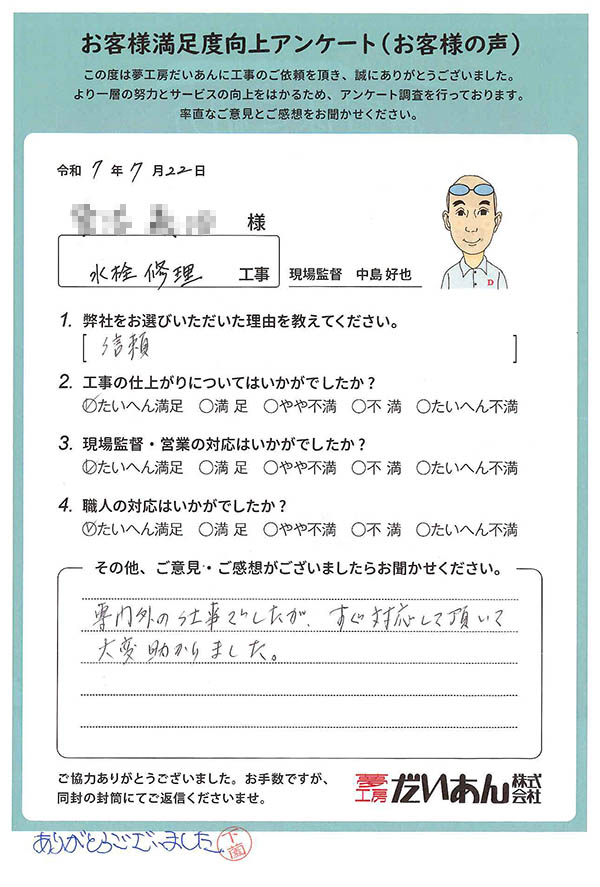 お客様満足度向上アンケート(お客様の声)
この度は夢工房だいあんに工事のご依頼を頂き、誠にありがとうございました。
より一層の努力とサービスの向上をはかるため、アンケート調査を行っております。
率直なご意見とご感想をお聞かせください。
令和 7 年 7 月 22 日
様
水栓修理 工事 現場監督 中島 好也
D
1. 弊社をお選びいただいた理由を教えてください。
[ 信頼 ]
2. 工事の仕上がりについてはいかがでしたか?
○たいへん満足 ○満 足 ○やや不満 ○不 満 ○たいへん不満
3. 現場監督・営業の対応はいかがでしたか?
○たいへん満足 ○満 足 ○やや不満 ○不 満 ○たいへん不満
4. 職人の対応はいかがでしたか?
○たいへん満足 ○満 足 ○やや不満 ○不 満 ○たいへん不満
その他、ご意見・ご感想がございましたらお聞かせください。
専門外の仕事でしたが、すぐ対応して頂いて
大変助かりました。
ご協力ありがとうございました。お手数ですが、
同封の封筒にてご返信くださいませ。
夢工房 だいあん 株式会社
ありがとうございました 下薗